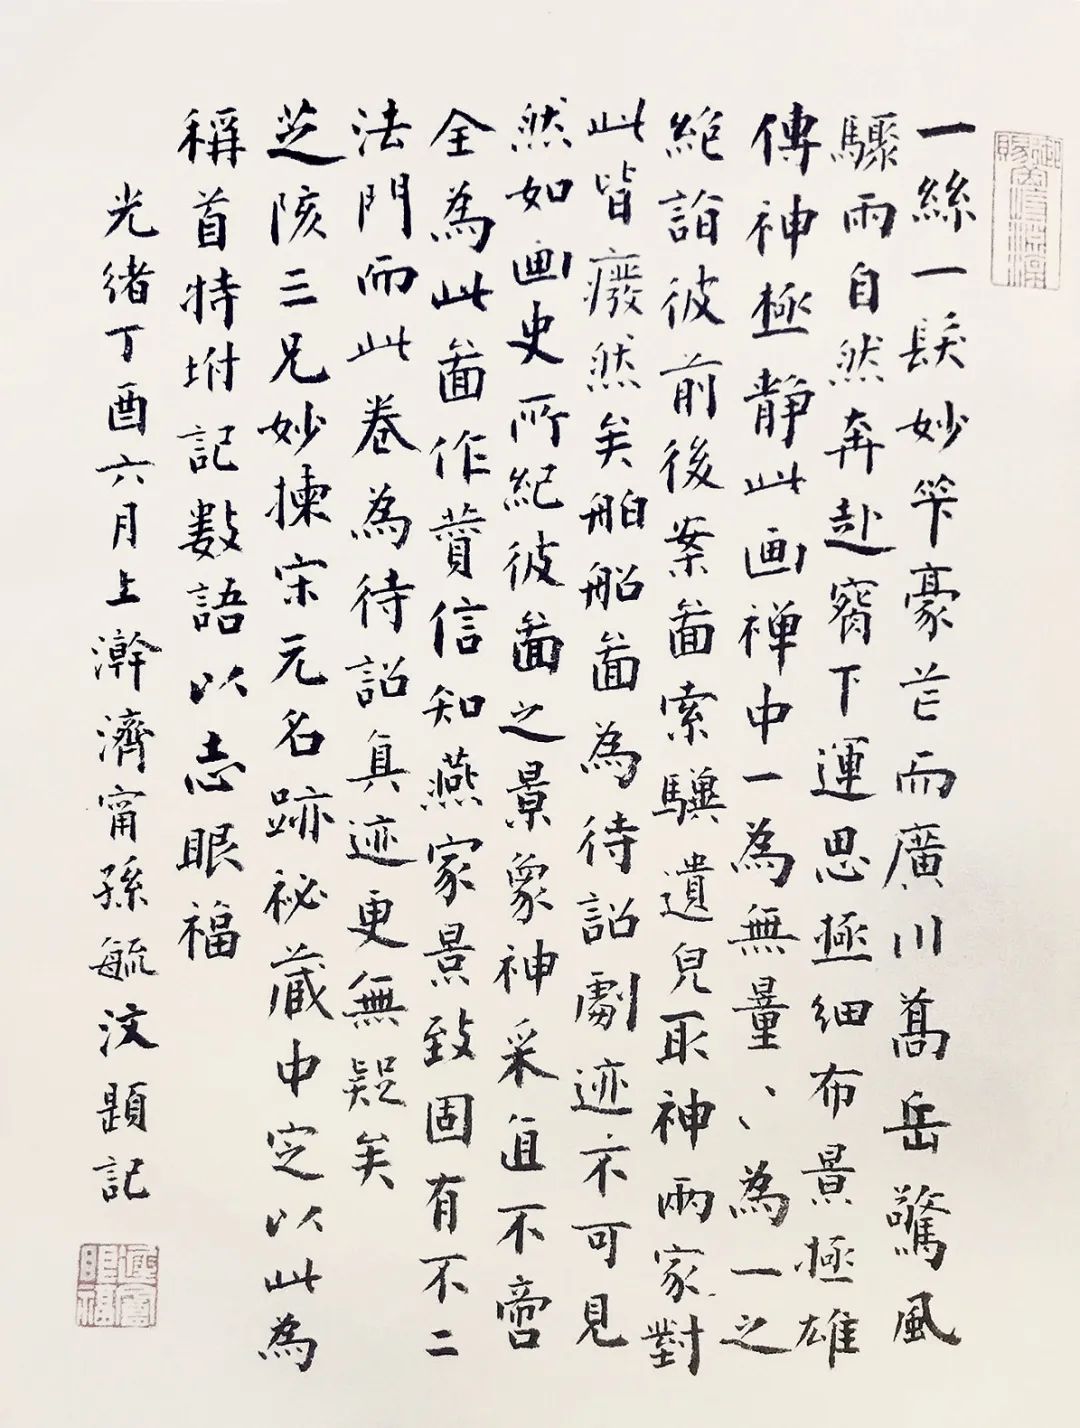 一絲一髮妙竿豪芒而廣川髙岳驚風
驟雨自然奔赴窬下運思極細布景極雄
傳神極靜此画禅中一為無量〻為一之
絶詣彼前後案啚索驥遺皃取神兩家對
此皆癈然矣舶船啚為待詔劇迹不可見
然如画史所紀彼啚之景象神采直不啻
全為此啚作贊信知燕家景致固有不二
法門而此卷為待詔真迹更無疑矣
芝陔三兄妙揀宋元名跡祕藏中定以此為
稱首特坿記數語以志眼福
光緒丁酉六月上澣濟甯孫毓汶題記
遲盦眼福